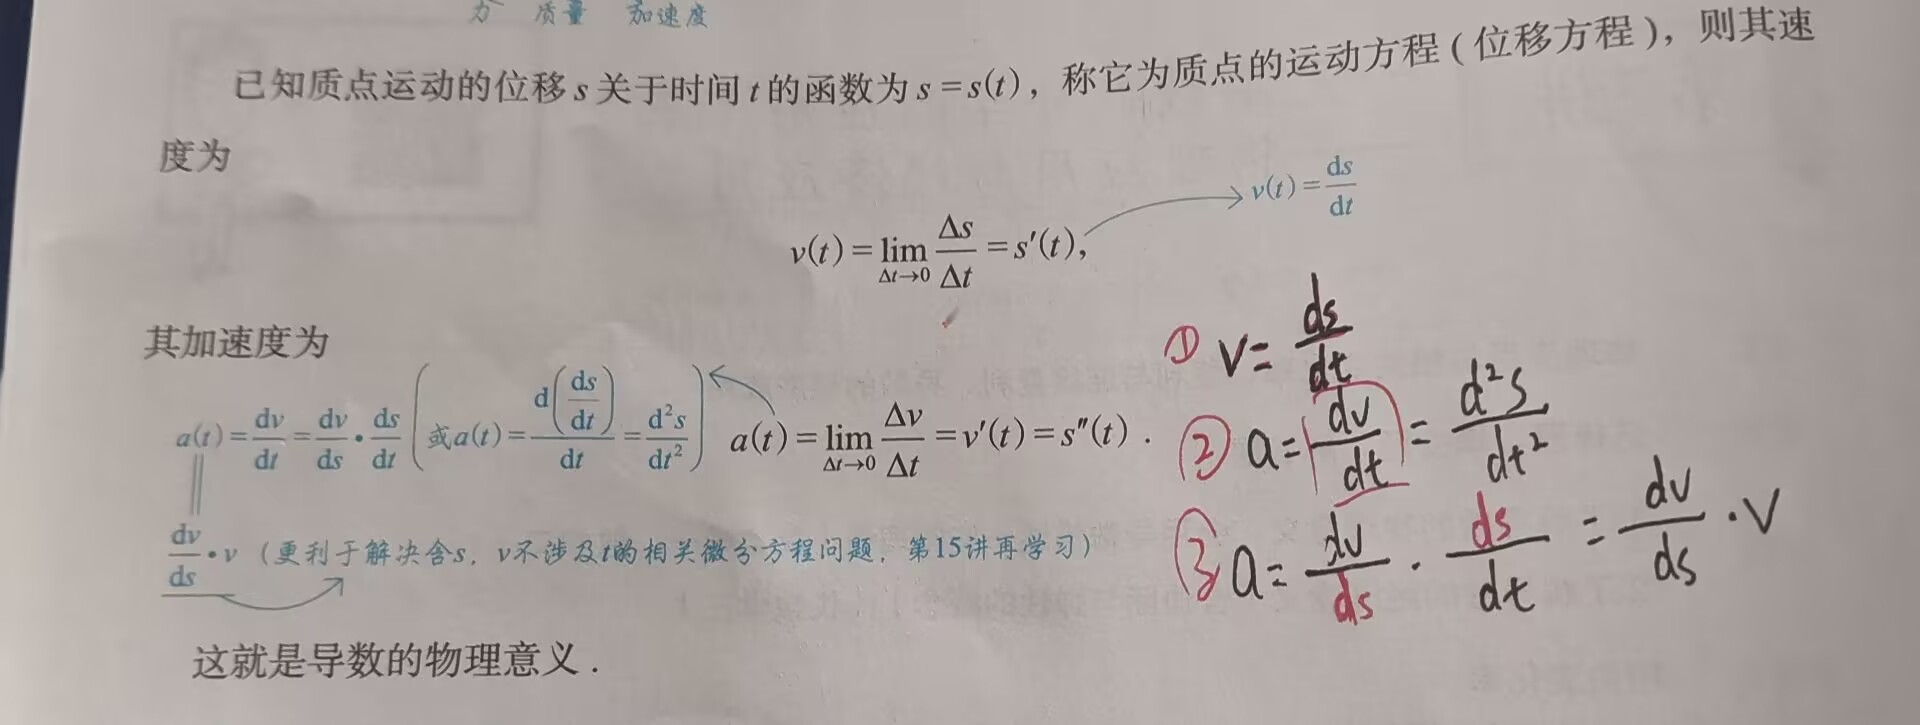 力 质量 加速度
已知质点运动的位移 s 关于时间 t 的函数为 s = s(t)，称它为质点的运动方程(位移方程)，则其速
度为
v(t) = ds/dt
v(t) = lim Δt→0 Δs/Δt = s′(t),
其加速度为
a(t) = dv/dt = dv/ds · ds/dt (或a(t) = d(ds/dt)/dt = d²s/dt²) a(t) = lim Δt→0 Δv/Δt = v′(t) = s″(t) .
|| dv/ds · v (更利于解决含s，v不涉及t的相关微分方程问题，第15讲再学习)
这就是导数的物理意义 .
① v = ds/dt
② a = dv/dt = d²s/dt²
③ a = dv/ds · ds/dt = dv/ds · v